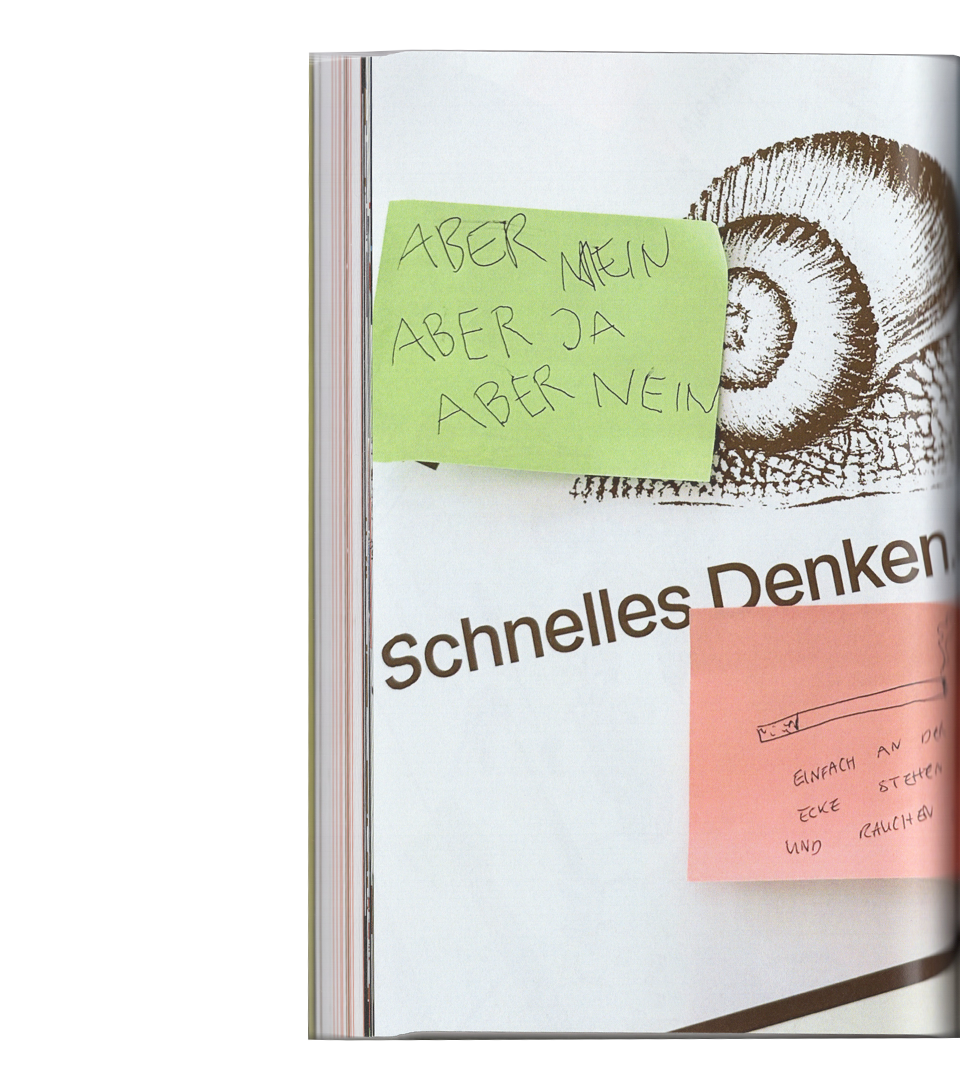 ABER NEIN
ABER JA
ABER NEIN
Schnelles Denken,
EINFACH AN DER
ECKE STEHEN
UND RAUCHEN